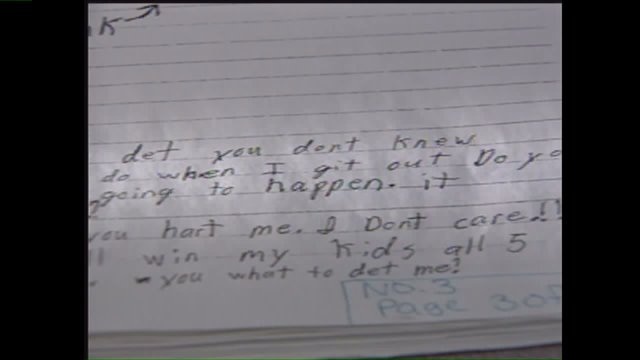 K
det you dont knew
do when I git out Do yo
going to happen. it
you hart me. I Dont care.!!
win my kids all 5
- you what to det me?
NO.3
Page 3 of